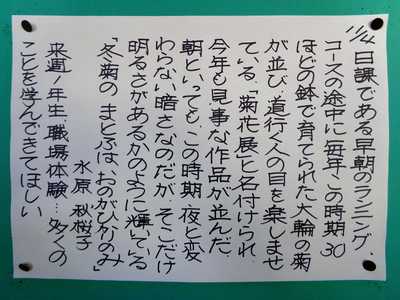 11/4 日課である早朝のランニング、
コースの途中に毎年、この時期30
ほどの鉢で育てられた大輪の菊
が並び、道行く人の目を楽しませ
ている。「菊花展」と名付けられ
今年も見事な作品が並んだ。
朝といっても、この時期、夜と変
わらない暗さなのだが、そこだけ
明るさがあるかのように輝いている
「冬菊の まとふは、おのがひかりのみ」
水原 秋桜子
来週1年生、職場体験…多くの
ことを学んできてほしい